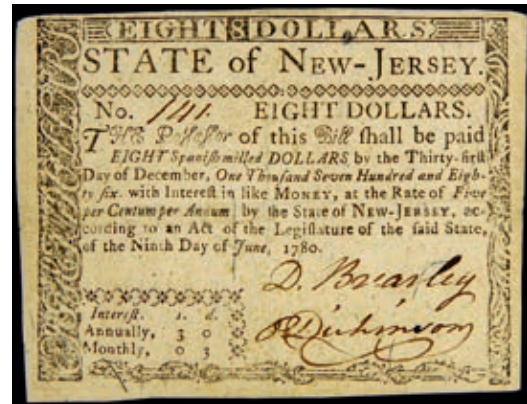 EIGHT 8 DOLLARS
STATE of NEW-JERSEY.
No. 141. EIGHT DOLLARS.
THE Poſſeſſor of this Bill ſhall be paid
EIGHT Spaniſh milled DOLLARS by the Thirty-firſt
Day of December, One Thouſand Seven Hundred and Eigh-
ty ſix. with Intereſt in like MONEY, at the Rate of Five
per Centum per Annum by the State of NEW-JERSEY, ac-
cording to an Act of the Legiſlature of the ſaid State,
of the Ninth Day of June, 1780.
D. Brearley
Dickinson
Intereſt. s. d.
Annually, 3 0
Monthly, 0 3